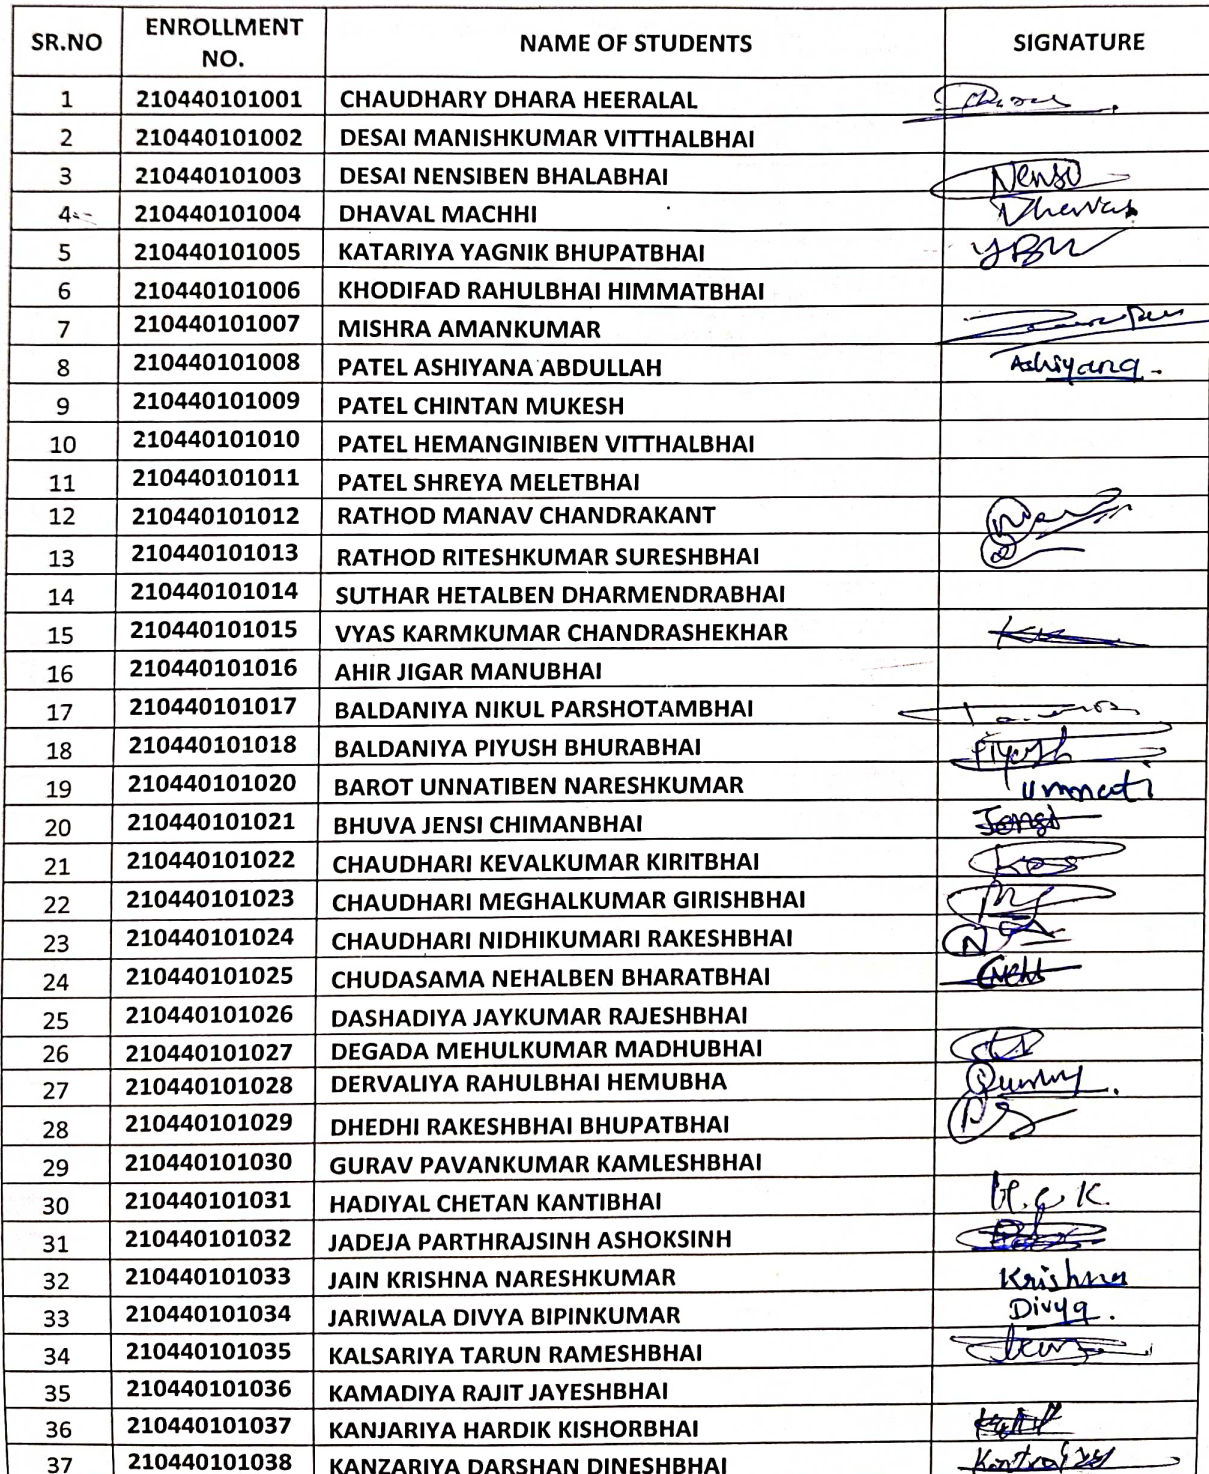 SR.NO ENROLLMENT NO. NAME OF STUDENTS SIGNATURE
1 210440101001 CHAUDHARY DHARA HEERALAL
2 210440101002 DESAI MANISHKUMAR VITTHALBHAI
3 210440101003 DESAI NENSIBEN BHALABHAI Nensi
4 210440101004 DHAVAL MACHHI Dhaval
5 210440101005 KATARIYA YAGNIK BHUPATBHAI
6 210440101006 KHODIFAD RAHULBHAI HIMMATBHAI
7 210440101007 MISHRA AMANKUMAR
8 210440101008 PATEL ASHIYANA ABDULLAH Ashiyana.
9 210440101009 PATEL CHINTAN MUKESH
10 210440101010 PATEL HEMANGINIBEN VITTHALBHAI
11 210440101011 PATEL SHREYA MELETBHAI
12 210440101012 RATHOD MANAV CHANDRAKANT
13 210440101013 RATHOD RITESHKUMAR SURESHBHAI
14 210440101014 SUTHAR HETALBEN DHARMENDRABHAI
15 210440101015 VYAS KARMKUMAR CHANDRASHEKHAR
16 210440101016 AHIR JIGAR MANUBHAI
17 210440101017 BALDANIYA NIKUL PARSHOTAMBHAI
18 210440101018 BALDANIYA PIYUSH BHURABHAI Piyush
19 210440101020 BAROT UNNATIBEN NARESHKUMAR Unnati
20 210440101021 BHUVA JENSI CHIMANBHAI Jensi
21 210440101022 CHAUDHARI KEVALKUMAR KIRITBHAI
22 210440101023 CHAUDHARI MEGHALKUMAR GIRISHBHAI
23 210440101024 CHAUDHARI NIDHIKUMARI RAKESHBHAI
24 210440101025 CHUDASAMA NEHALBEN BHARATBHAI
25 210440101026 DASHADIYA JAYKUMAR RAJESHBHAI
26 210440101027 DEGADA MEHULKUMAR MADHUBHAI
27 210440101028 DERVALIYA RAHULBHAI HEMUBHA
28 210440101029 DHEDHI RAKESHBHAI BHUPATBHAI
29 210440101030 GURAV PAVANKUMAR KAMLESHBHAI
30 210440101031 HADIYAL CHETAN KANTIBHAI H.C.K.
31 210440101032 JADEJA PARTHRAJSINH ASHOKSINH
32 210440101033 JAIN KRISHNA NARESHKUMAR Krishna
33 210440101034 JARIWALA DIVYA BIPINKUMAR Divya.
34 210440101035 KALSARIYA TARUN RAMESHBHAI
35 210440101036 KAMADIYA RAJIT JAYESHBHAI
36 210440101037 KANJARIYA HARDIK KISHORBHAI
37 210440101038 KANZARIYA DARSHAN DINESHBHAI